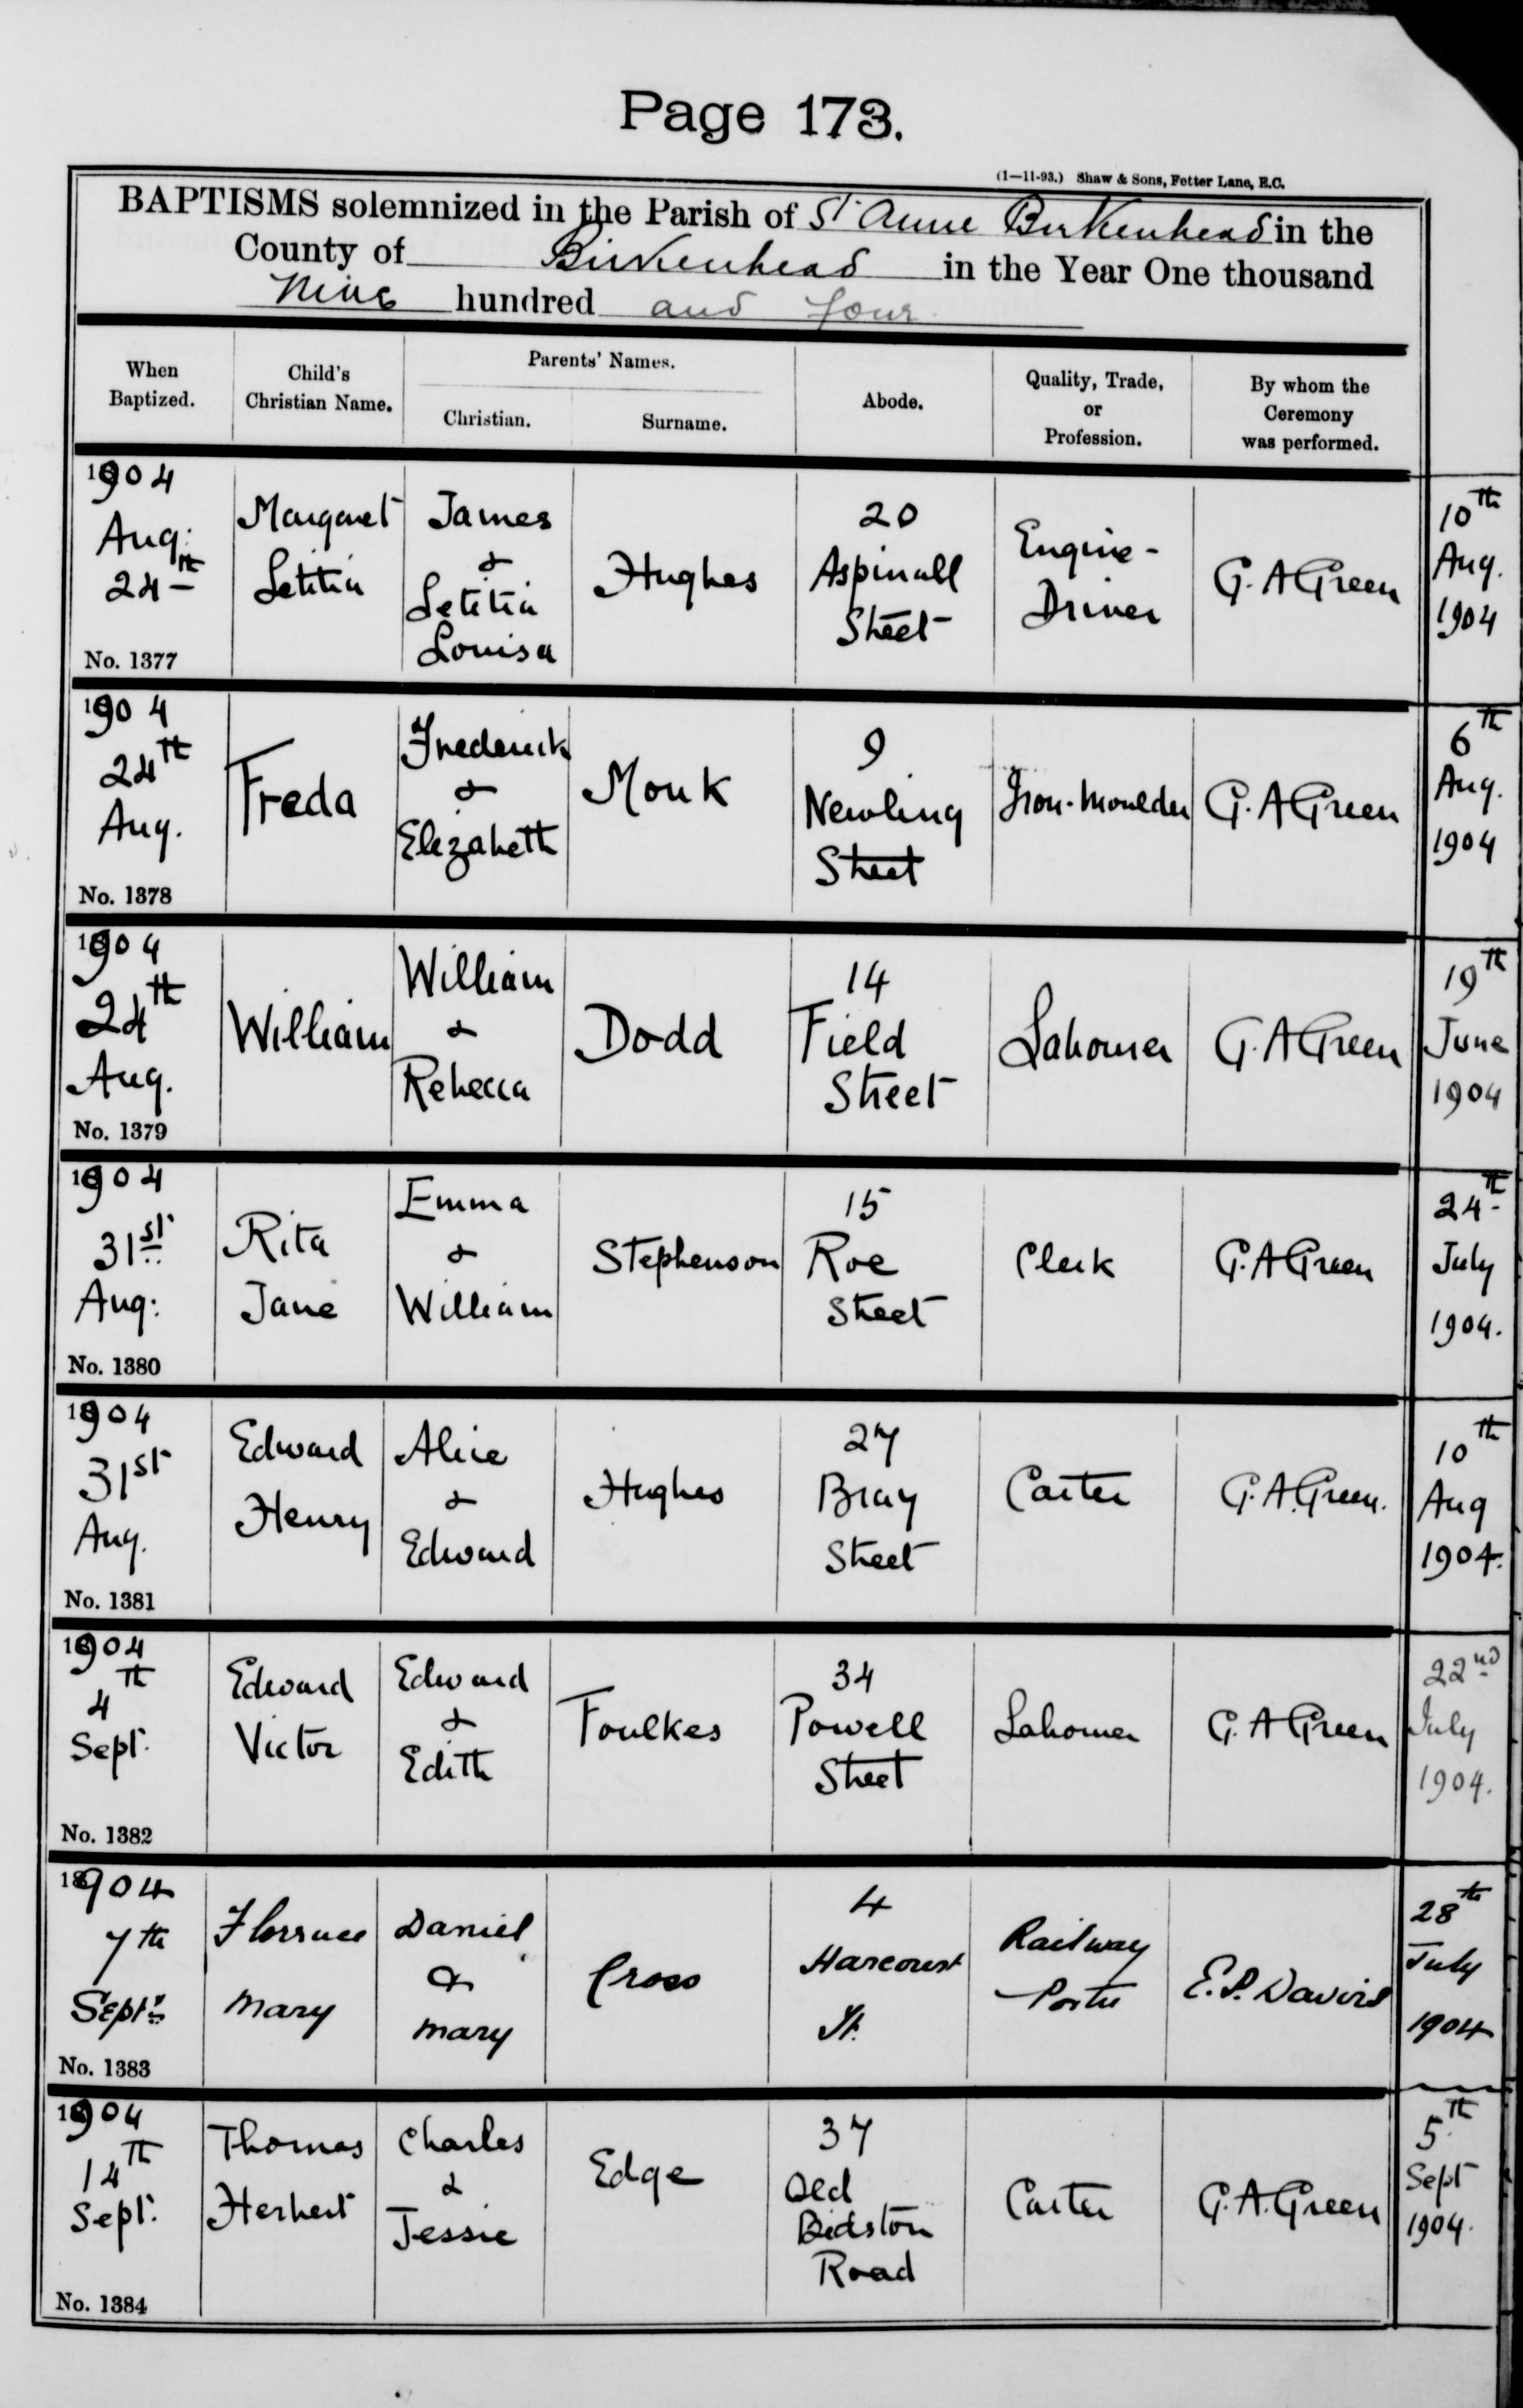 Page 173.
(1—11-93.) Shaw & Sons, Fetter Lane, E.C.
BAPTISMS solemnized in the Parish of St. Anne Birkenhead in the
County of Birkenhead in the Year One thousand
Nine hundred and four
When
Baptized.
Child's
Christian Name.
Parents' Names.
Christian.
Surname.
Abode.
Quality, Trade,
or
Profession.
By whom the
Ceremony
was performed.
1904
Aug:
24th
No. 1377
Margaret
Letitia
James
&
Letitia
Louisa
Hughes
20
Aspinall
Street
Engine-
Driver
G. A Green
10th
Aug.
1904
1904
24th
Aug.
No. 1378
Freda
Frederick
&
Elizabeth
Monk
9
Newling
Street
Iron-Moulder
G. A Green
6th
Aug.
1904
1904
24th
Aug.
No. 1379
William
William
&
Rebecca
Dodd
14
Field
Street
Labourer
G. A Green
19th
June
1904
1904
31st
Aug:
No. 1380
Rita
Jane
Emma
&
William
Stephenson
15
Roe
Street
Clerk
G. A Green
24th
July
1904.
1904
31st
Aug.
No. 1381
Edward
Henry
Alice
&
Edward
Hughes
27
Bray
Street
Carter
G. A. Green.
10th
Aug
1904.
1904
4th
Sept.
No. 1382
Edward
Victor
Edward
&
Edith
Foulkes
34
Powell
Street
Labourer
G. A Green
22nd
July
1904.
1904
7th
Septr
No. 1383
Florence
Mary
Daniel
&
Mary
Cross
4
Harcourt
St.
Railway
Porter
E. P. David
28th
July
1904
1904
14th
Sept.
No. 1384
Thomas
Herbert
Charles
&
Jessie
Edge
37
Old
Bidston
Road
Carter
G. A. Green
5th
Sept
1904.